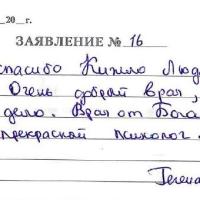 20 г.
ЗАЯВЛЕНИЕ № 16
спасибо Люд
Очень добрый врач,
дело. Врач от Бога
прекрасный психолог.